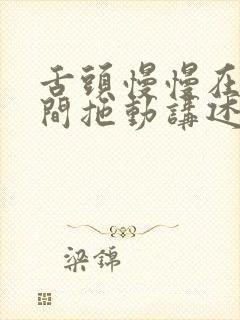 舌頭慢慢在
間拖動講述
梁錦